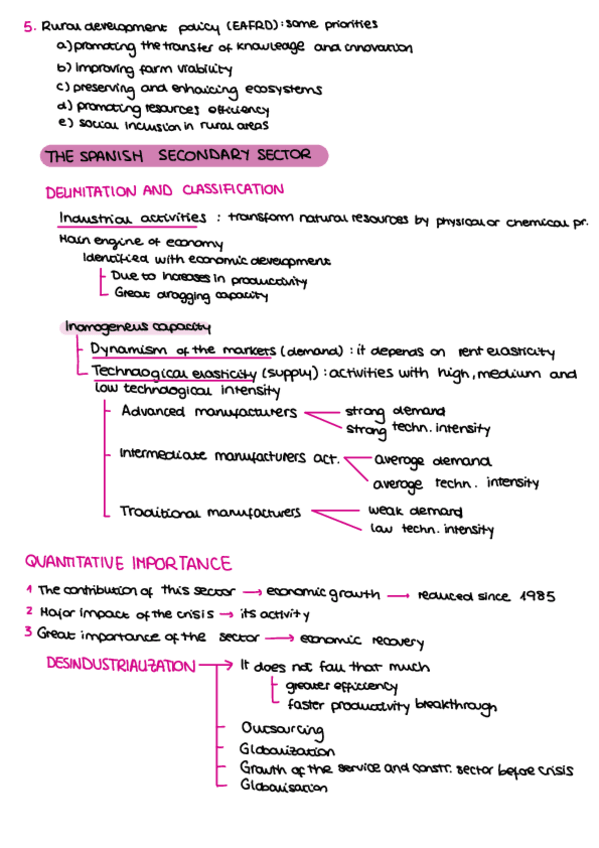 5. Rural development policy (EAFRD): some priorities
a) promoting the transfer of knowleage and innovation
b) improving farm viability
c) preserving and enhaicing ecosystems
d) promoting resources efficiency
e) social inclusion in rural areas
THE SPANISH SECONDARY SECTOR
DELIMITATION AND CLASSIFICATION
Industrial activities : transform natural resources by physical or chemical pr.
Main engine of economy
Identified with economic development
Due to increases in productivity
Great dragging capacity
Inomogeneus capacity
Dynamism of the markets (demand) : it depends on rent elasticity
Technological elasticity (supply) : activities with high, medium and
low technological intensity
Advanced manufacturers
strong demand
strong techn. intensity
Intermediate manufacturers act.
average demand
average techn. intensity
Traditional manufacturers
weak demand
low techn. intensity
QUANTITATIVE IMPORTANCE
1 The contribution of this sector → economic growth → reduced since 1985
2 Major impact of the crisis → its activity
3 Great importance of the sector → economic recovery
DESINDUSTRIALIZATION → It does not fall that much
greater efficiency
faster productivity breakthrough
Outsourcing
Globalization
Growth of the service and constr. sector before crisis
Globalisation